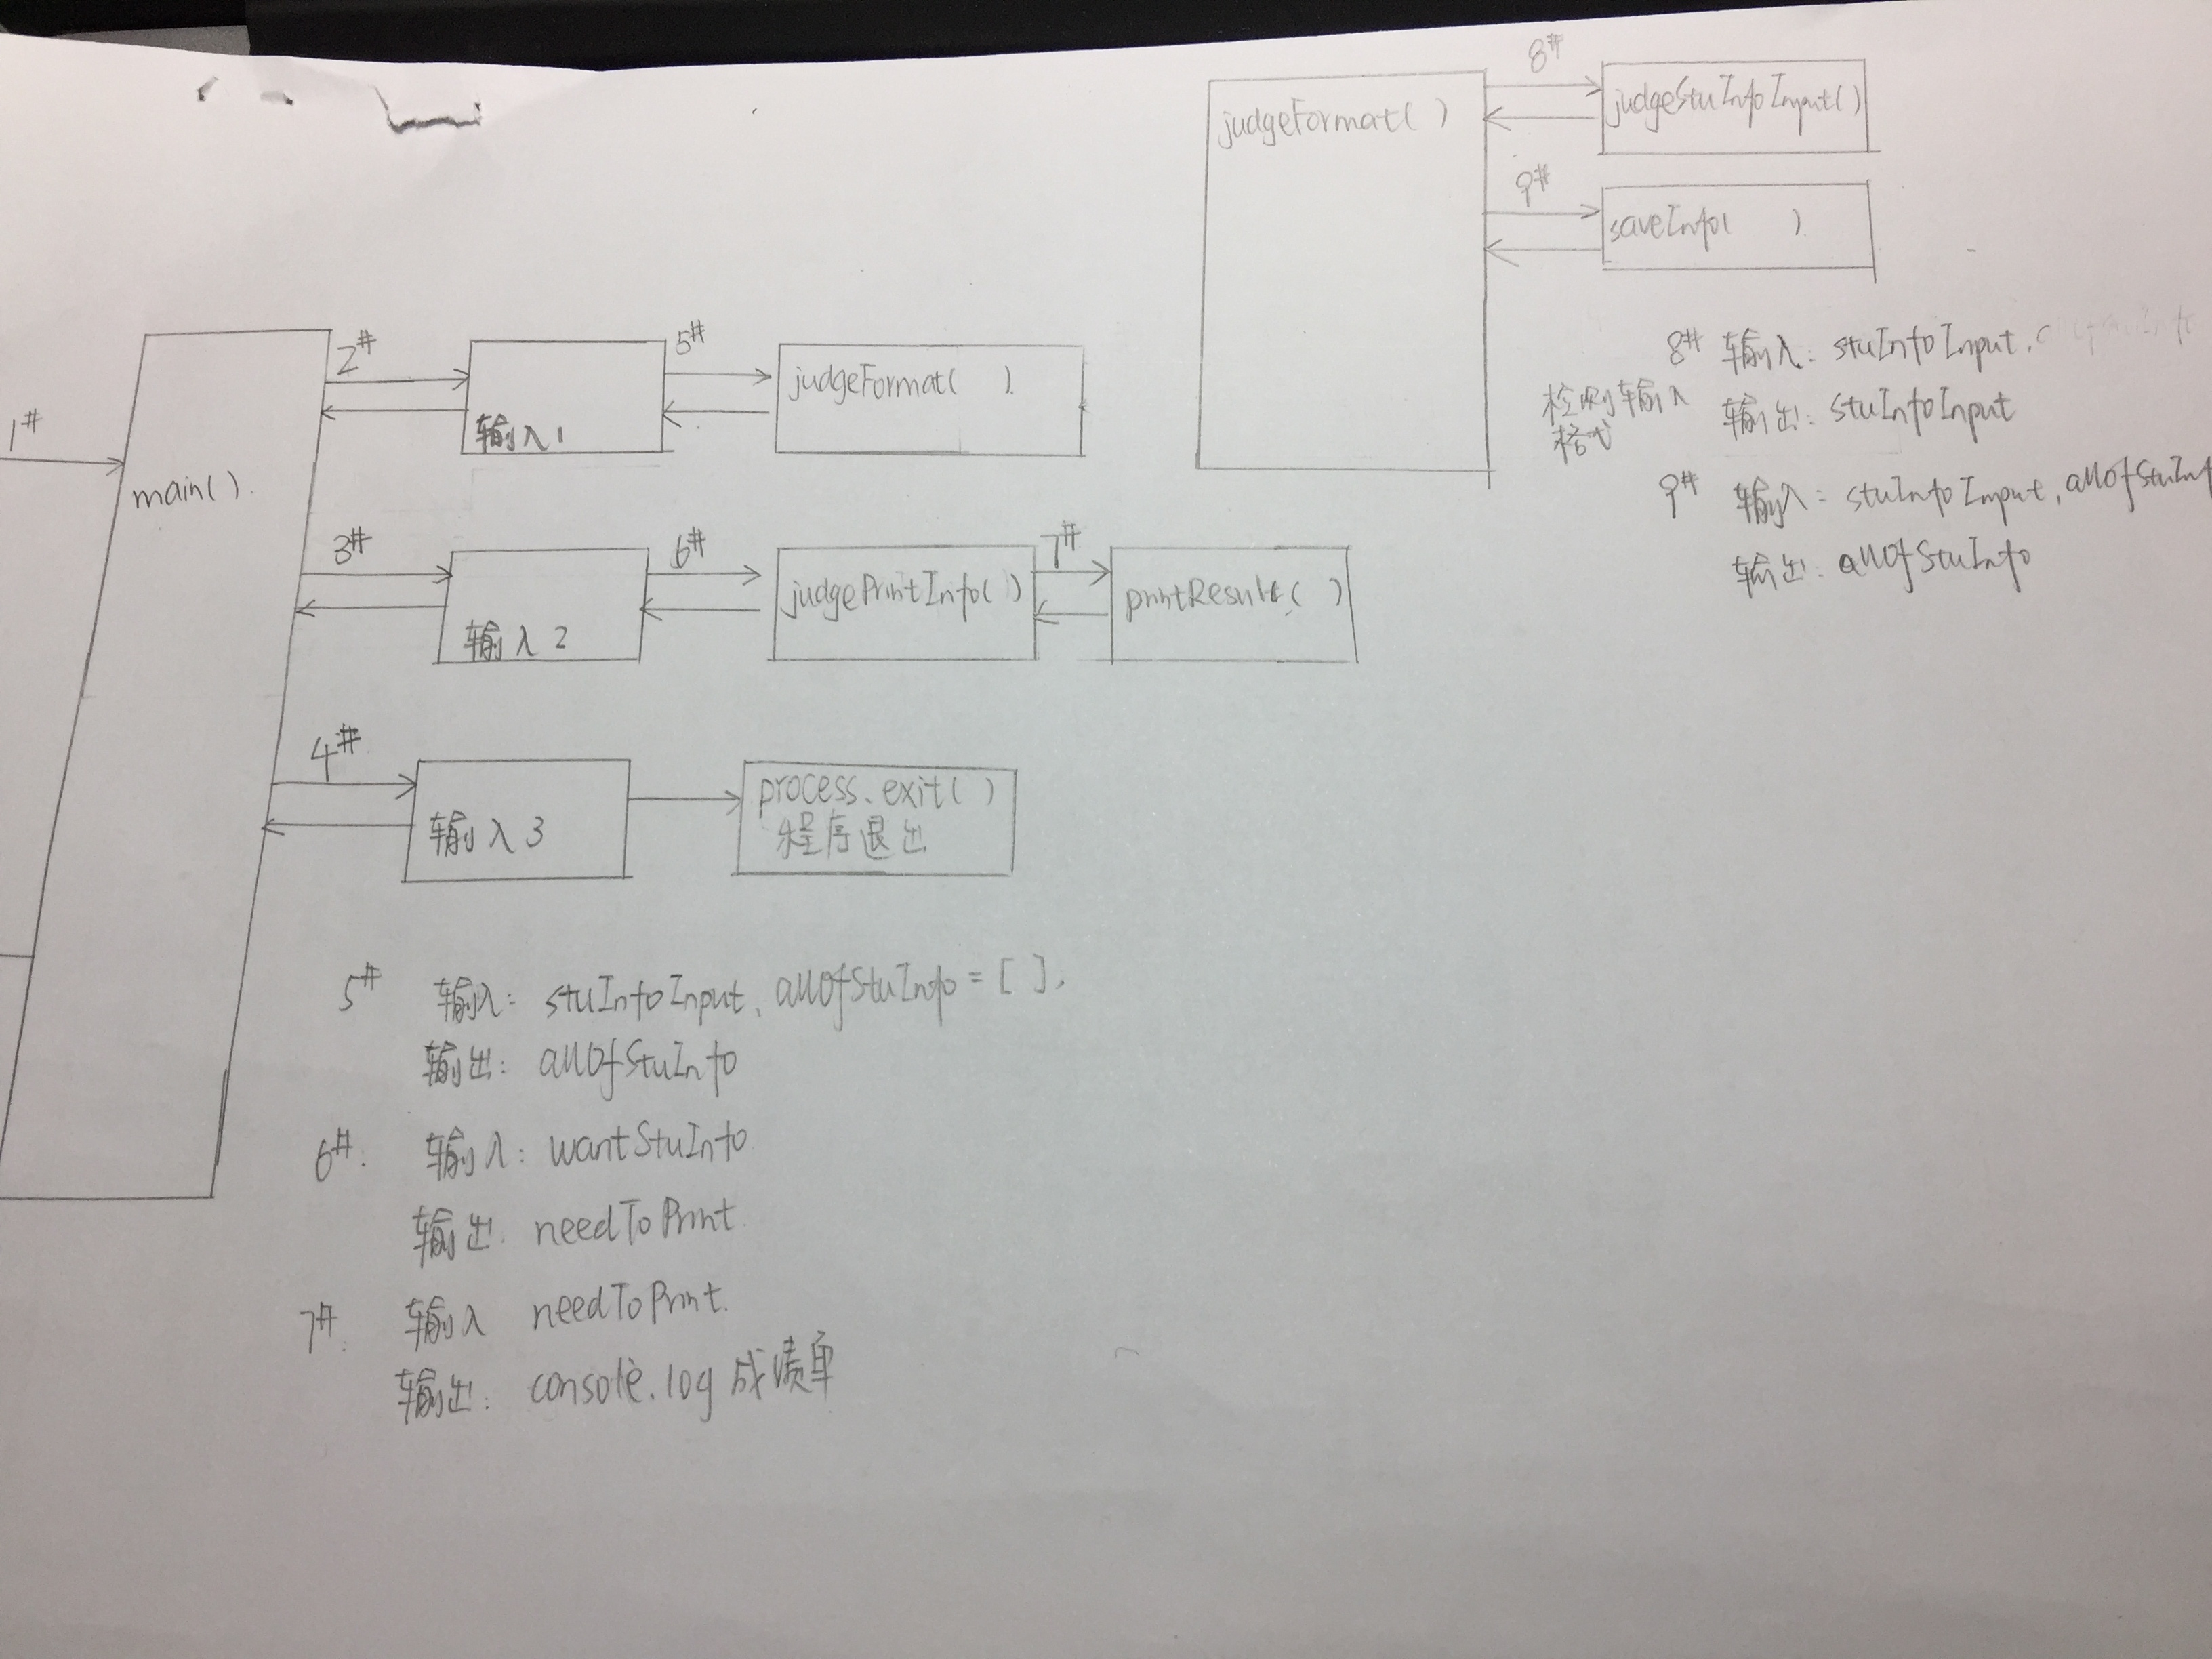 1#
main().
2#
输入1
5#
judgeFormat( ).
3#
输入2
6#
judgePrintInfo()
7#
printResult( )
4#
输入3
process.exit( )
程序退出
5# 输入: stuInfoInput, allOfStuInfo = [ ],
输出: allOfStuInfo
6#: 输入: wantStuInfo
输出: needToPrint
7#: 输入 needToPrint.
输出: console.log 成绩单
judgeFormat( )
8#
judgeStuInfoInput()
9#
saveInfo( ).
检测输入
格式
8# 输入: stuInfoInput,
输出: stuInfoInput
9# 输入: stuInfoInput, allOfStuInf
输出: allOfStuInfo